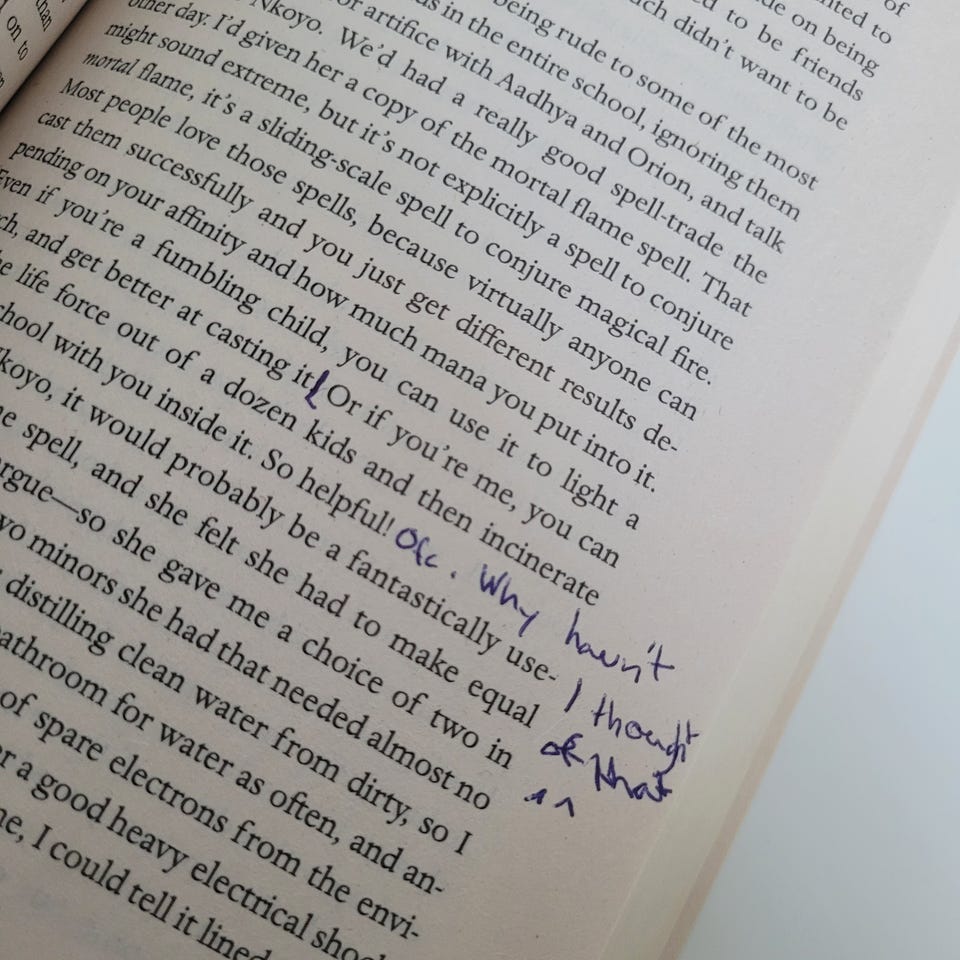 than
on to
of
to
on being
to be friends
didn't want to be
being rude to some of the most
in the entire school, ignoring them
or artifice with Aadhya and Orion, and talk
Nkoyo. We'd had a really good spell-trade the
other day. I'd given her a copy of the mortal flame spell. That
might sound extreme, but it's not explicitly a spell to conjure
mortal flame, it's a sliding-scale spell to conjure magical fire.
Most people love those spells, because virtually anyone can
cast them successfully and you just get different results de-
pending on your affinity and how much mana you put into it.
Even if you're a fumbling child, you can use it to light a
and get better at casting it Or if you're me, you can
life force out of a dozen kids and then incinerate
school with you inside it. So helpful!
Ofc. Why haven't
I thought
of that
^^
Nkoyo, it would probably be a fantastically use-
spell, and she felt she had to make equal
argue—so she gave me a choice of two in
two minors she had that needed almost no
distilling clean water from dirty, so I
bathroom for water as often, and an-
of spare electrons from the envi-
a good heavy electrical shock
I could tell it lined